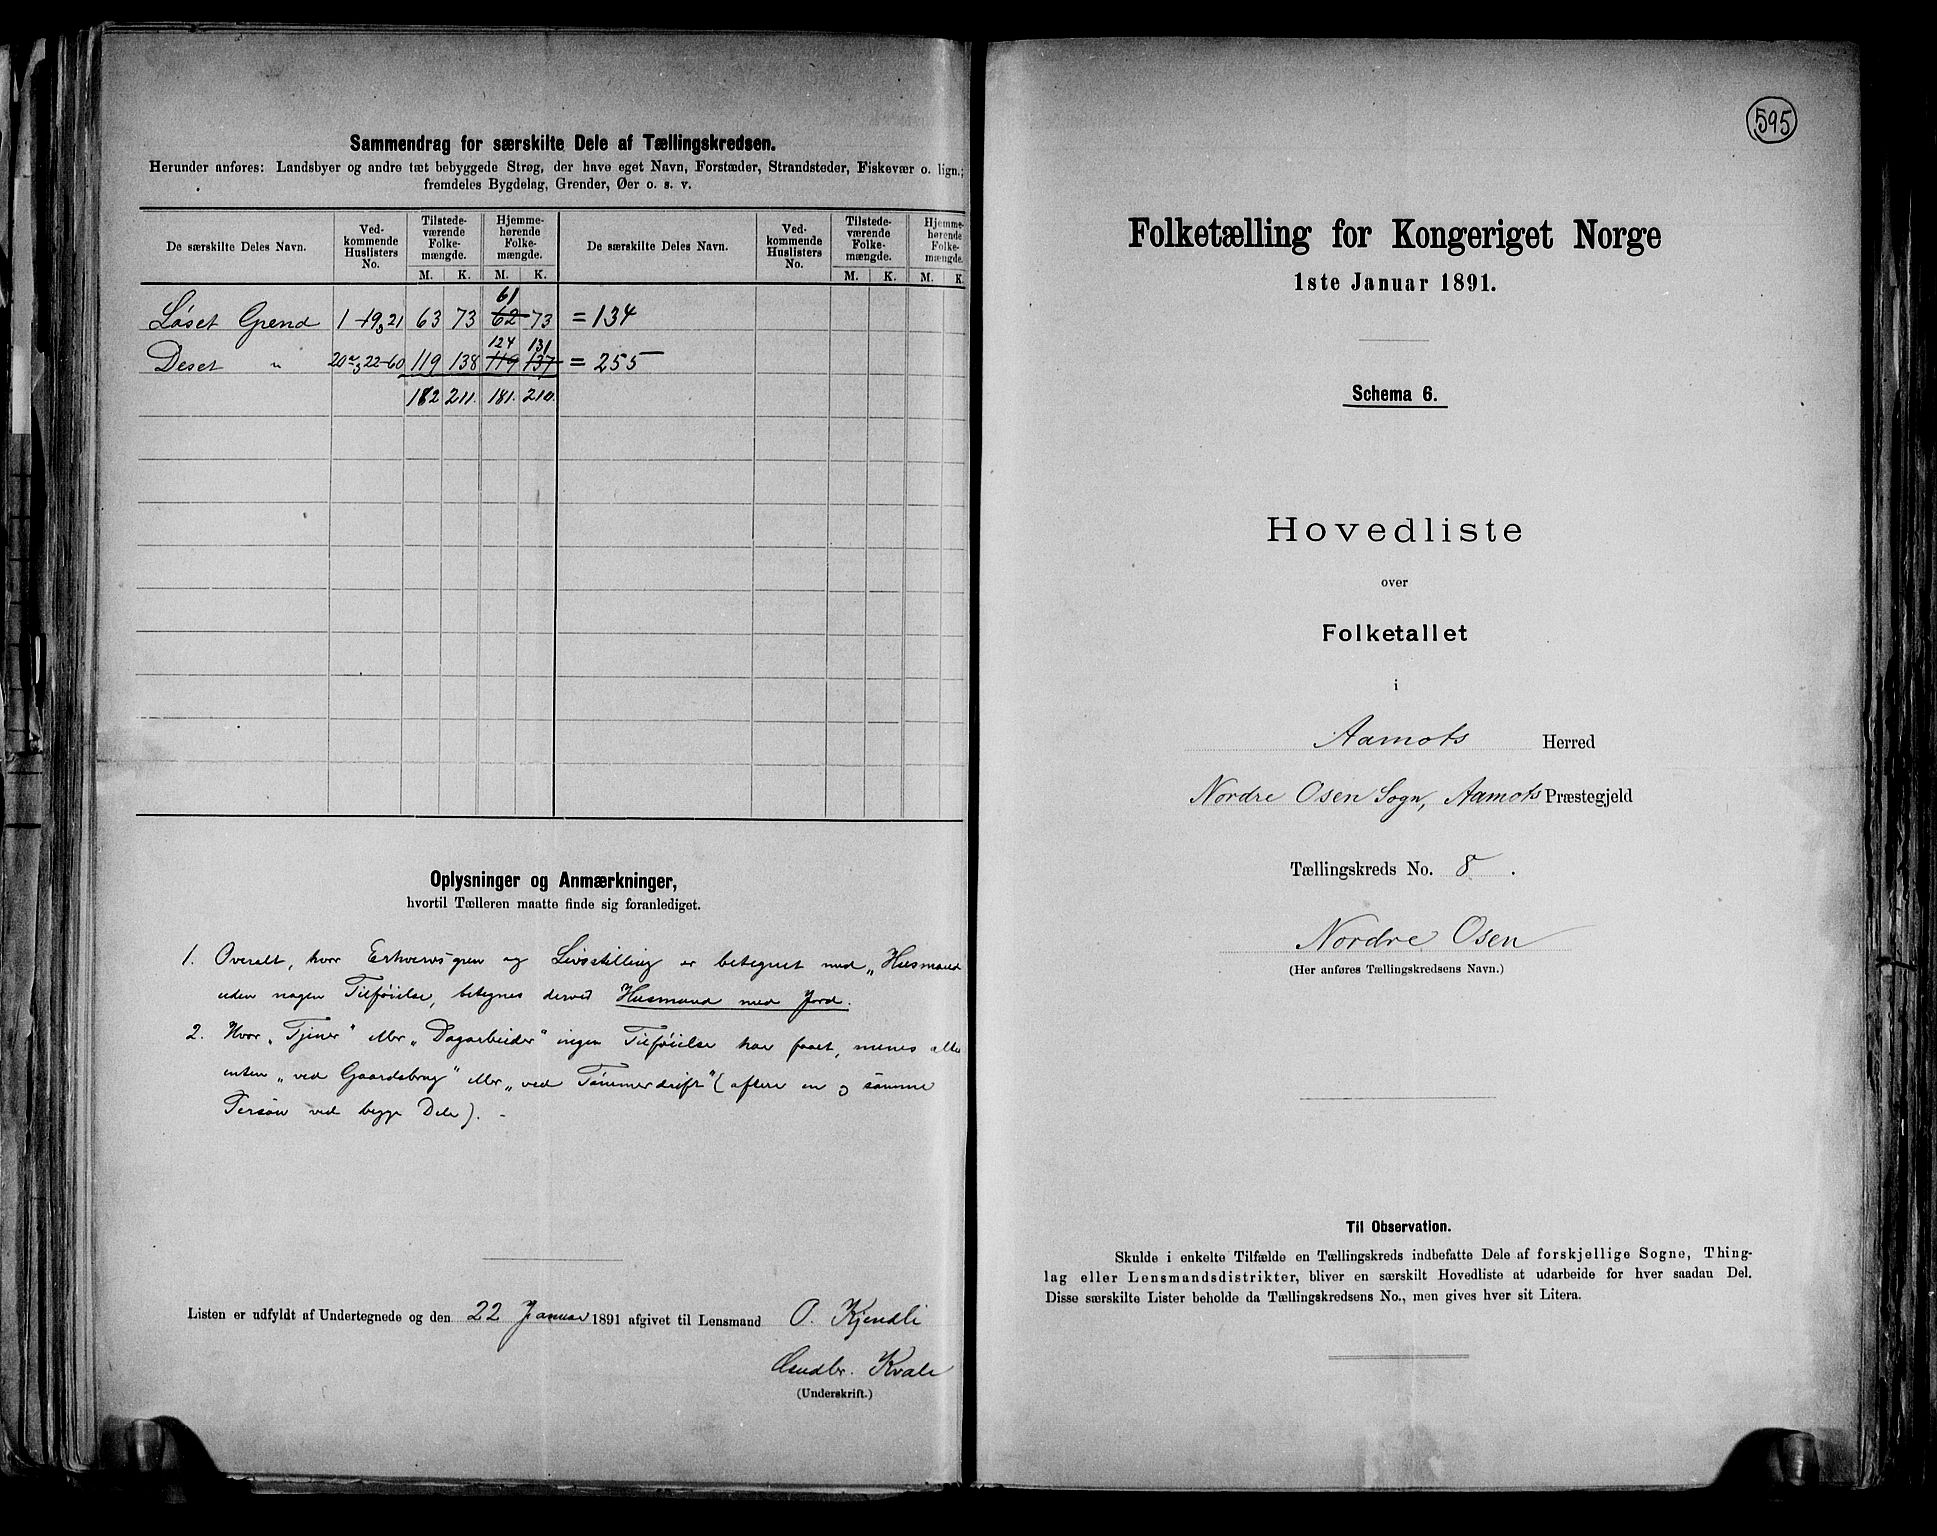 Sammendrag for særskilte Dele af Tællingskredsen.
Herunder anføres: Landsbyer og andre tæt bebyggede Strøg, der have eget Navn, Forstæder, Strandsteder, Fiskevær o. lign.;
fremdeles Bygdelag, Grender, Øer o. s. v.
De særskilte Deles Navn. Ved-kommende Huslisters No. Tilstede-værende Folke-mængde. Hjemme-hørende Folke-mængde. De særskilte Deles Navn. Ved-kommende Huslisters No. Tilstede-værende Folke-mængde. Hjemme-hørende Folke-mængde.
M. K. M. K. M. K. M. K.
61
Løset Grend 1-19, 21 63 73 62 73 = 134
124 131
Deset " 20 22-60 119 138 119 137 = 255
182 211. 181. 210.
Oplysninger og Anmærkninger,
hvortil Tælleren maatte finde sig foranlediget.
1. Overalt, hvor Erhvervsgren og Livsstilling er betegnet med „Husmand
uden nogen Tilføielse, betegnes derved Husmand med Jord.
2. Hvor „Tjener" eller „Dagarbeider" ingen Tilføielse har faaet, menes
enten „ved Gaardsbrug" eller „ved Tømmerdrift" (oftere en og samme
Person ved begge Dele). -
Listen er udfyldt af Undertegnede og den 22 Januar 1891 afgivet til Lensmand O. Kjendli
Kvale
(Underskrift.)
595
Folketælling for Kongeriget Norge
1ste Januar 1891.
Schema 6.
Hovedliste
over
Folketallet
i
Aamots Herred
Nordre Osen Sogn, Aamots Præstegjeld
Tællingskreds No. 8.
Nordre Osen
(Her anføres Tællingskredsens Navn.)
Til Observation.
Skulde i enkelte Tilfælde en Tællingskreds indbefatte Dele af forskjellige Sogne, Thing-
lag eller Lensmandsdistrikter, bliver en særskilt Hovedliste at udarbeide for hver saadan Del.
Disse særskilte Lister beholde da Tællingskredsens No., men gives hver sit Litera.